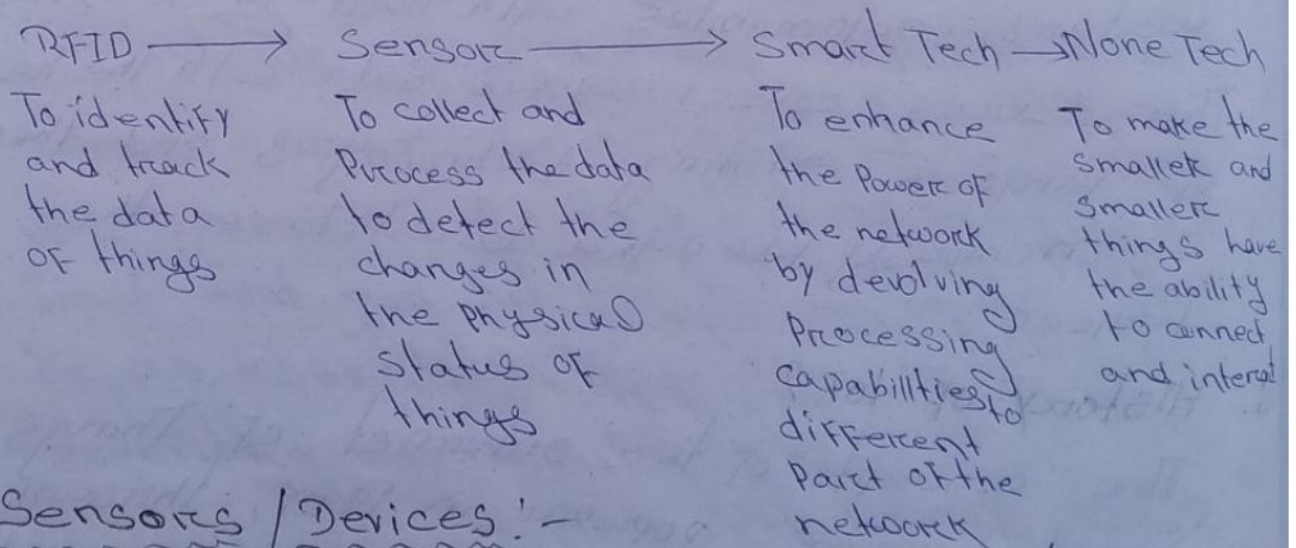 RFID → Sensor → Smart Tech → None Tech
To identify
and track
the data
of things
To collect and
Process the data
to detect the
changes in
the physical
status of
things
To enhance
the Power of
the network
by devolving
Processing
capabillties to
different
Part of the
network
To make the
smaller and
smaller
things have
the ability
to connect
and interat
Sensors / Devices :-